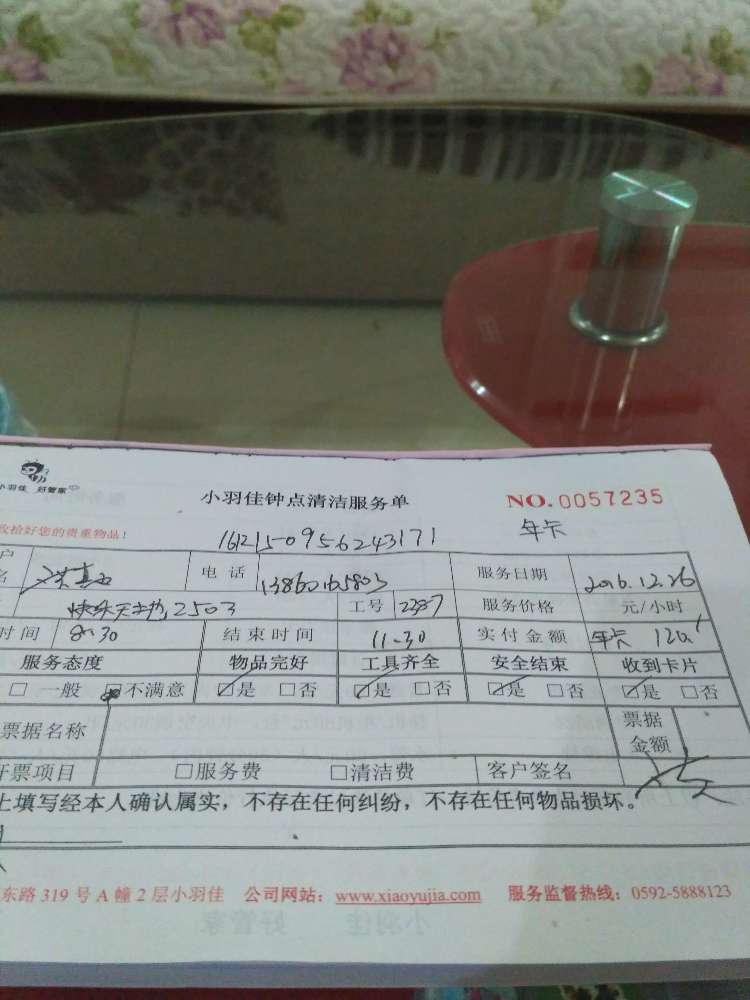 小羽佳 好管家
小羽佳钟点清洁服务单
NO.0057235
收拾好您的贵重物品!
1612150956243171
年卡
户
名
电 话
服务日期
2016.12.26
2503
工号
2387
服务价格
元/小时
时间
8:30
结束时间
11:30
实付金额
年卡
服务态度
物品完好
工具齐全
安全结束
收到卡片
□ 一般 □不满意
☑是 □否
☑是 □否
☑是 □否
☑是 □否
票据名称
票据
金额
开票项目
□服务费
□清洁费
客户签名
上填写经本人确认属实，不存在任何纠纷，不存在任何物品损坏。
东路 319 号 A 幢 2 层小羽佳 公司网站：www.xiaoyujia.com 服务监督热线：0592-5888123